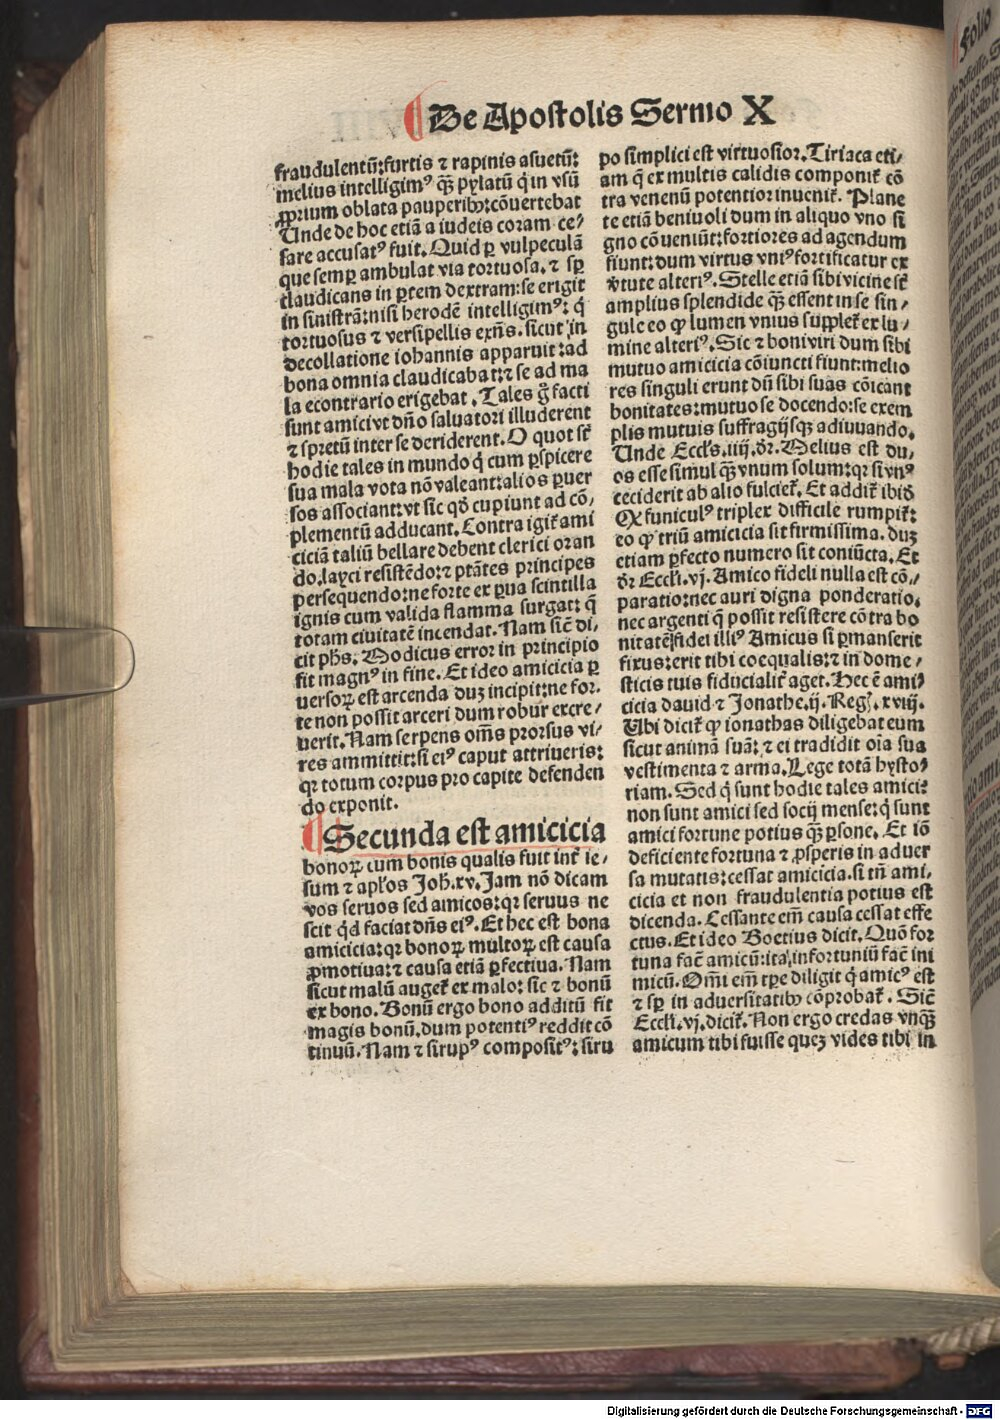 De Apostolis Sermo X
fraudulentū: furtis ⁊ rapinis asuetū:
melius intelligimꝰ qȝ̄ pylatū q̇ in vsū
ꝓprium oblata pauperibꝰ: cōuertebat
Unde de hoc etiā a iudeis coram ce⸗
sare accusatꝰ fuit. Quid ꝑ vulpeculā
que semꝑ ambulat via tortuosa. ⁊ sꝑ
claudicans in ꝑtem dextram: se erigit
in sinistrā: nisi herodē intelligimꝰ: q̇
tortuosus ⁊ versipellis exn̄s. sicut in
decollatione iohannis apparuit: ad
bona omnia claudicabat: ⁊ se ad ma
la econtrario erigebat. Tales g̊ facti
sunt amici vt dn̄o saluatori illuderent
⁊ spretū inter se deriderent. O quot st̄
hodie tales in mundo q̇ cum ꝑspicere
sua mala vota nō valeant: alios ꝑuer
sos associant: vt sic qd̄ cupiunt ad cō⸗
plementū adducant. Contra igit̄ ami
ciciā taliū bellare debent clerici oran
do. layci resistēdo: ⁊ ptātes principes
persequendo: ne forte ex ꝑua scintilla
ignis cum valida flamma surgat: q̄
totam ciuitatē incendat. Nam sicē di⸗
cit ph̄s. Modicus error in principio
fit magnꝰ in fine. Et ideo amicicia ꝑ
uersoꝝ est arcenda duȝ incipit: ne for⸗
te non possit arceri dum robur excre⸗
uerit. Nam serpens om̄s prorsus vi⸗
res ammittit: si eiꝰ caput attriueris:
qꝛ totum corpus pro capite defenden
do exponit.
Secunda est amicicia
bonoꝝ cum bonis qualis fuit int̄ ie⸗
sum ⁊ apl̄os Joh̄. xv. Jam nō dicam
vos seruos sed amicos: qꝛ seruus ne
scit qd̄ faciat dn̄s eiꝰ. Et hec est bona
amicicia: qꝛ bonoꝝ multoꝝ est causa
ꝓmotiua: ⁊ causa etiā ꝑfectiua. Nam
sicut malū auget̄ ex malo: sic ⁊ bonū
ex bono. Bonū ergo bono additū fit
magis bonū. dum potentiꝰ reddit cō
tinuū. Nam ⁊ sirupꝰ compositꝰ: siru
po simplici est virtuosior. Tiriaca eti⸗
am q̄ ex multis calidis componit̄ cō
tra venenū potentior inuenit̄. Plane
te etiā beniuoli dum in aliquo vno si
gno cōueniūt: fortiores ad agendum
fiunt: dum virtus vniꝰ fortificatur ex
v̄tute alteriꝰ. Stelle etiā sibi vicine st̄
amplius splendide qȝ̄ essent in se sin⸗
gule eo ꝙ lumen vnius supplet̄ ex lu⸗
mine alteriꝰ. Sic ⁊ boni viri dum sibi
mutuo amicicia cōiuncti fiunt: melio
res singuli erunt dū sibi suas cōicant
bonitates: mutuo se docendo: se exem
plis mutuis suffragijsqȝ adiuuando.
Unde Eccl̄s. iiij. dr̄. Melius est du⸗
os esse simul qȝ̄ vnum solum: qꝛ si vnꝰ
ceciderit ab alio fulciet̄. Et addit̄ ibid̄
Qꝫ funiculꝰ triplex difficile rumpit̄:
eo ꝙ triū amicicia sit firmissima. duȝ
etiam ꝑfecto numero sit coniūcta. Et
dr̄ Eccl̄i. vj. Amico fideli nulla est cō⸗
paratio: nec auri digna ponderatio.
nec argenti q̄ possit resistere cōtra bo
nitatē fidei illiꝰ Amicus si ꝑmanserit
fixus: erit tibi coequalis: ⁊ in dome⸗
sticis tuis fiducialit̄ aget. Hec ē ami⸗
cicia dauid ⁊ Jonathe. ij. Reg̊. xviij.
Ubi dicit̄ ꝙ ionathas diligebat eum
sicut animā suā: ⁊ ei tradidit oīa sua
vestimenta ⁊ arma. Lege totā hysto⸗
riam. Sed q̇ sunt hodie tales amici:
non sunt amici sed socij mense: q̇ sunt
amici fortune potius qȝ̄ ꝑsone. Et iō
deficiente fortuna ⁊ ꝓsperis in aduer
sa mutatis: cessat amicicia. si tn̄ ami⸗
cicia et non fraudulentia potius est
dicenda. Cessante em̄ causa cessat effe
ctus. Et ideo Boetius dicit. Quō for
tuna fac̄ amicū: ita infortuniū fac̄ ini
micū. Om̄i em̄ tp̄e diligit q̇ amicꝰ est
⁊ sꝑ in aduersitatibꝰ cōprobat̄. Sicē
Eccl̄i. vj. dicit̄. Non ergo credas vnqȝ̄
amicum tibi fuisse queȝ vides tibi in
Digitalisierung gefördert durch die Deutsche Forschungsgemeinschaft - DFG